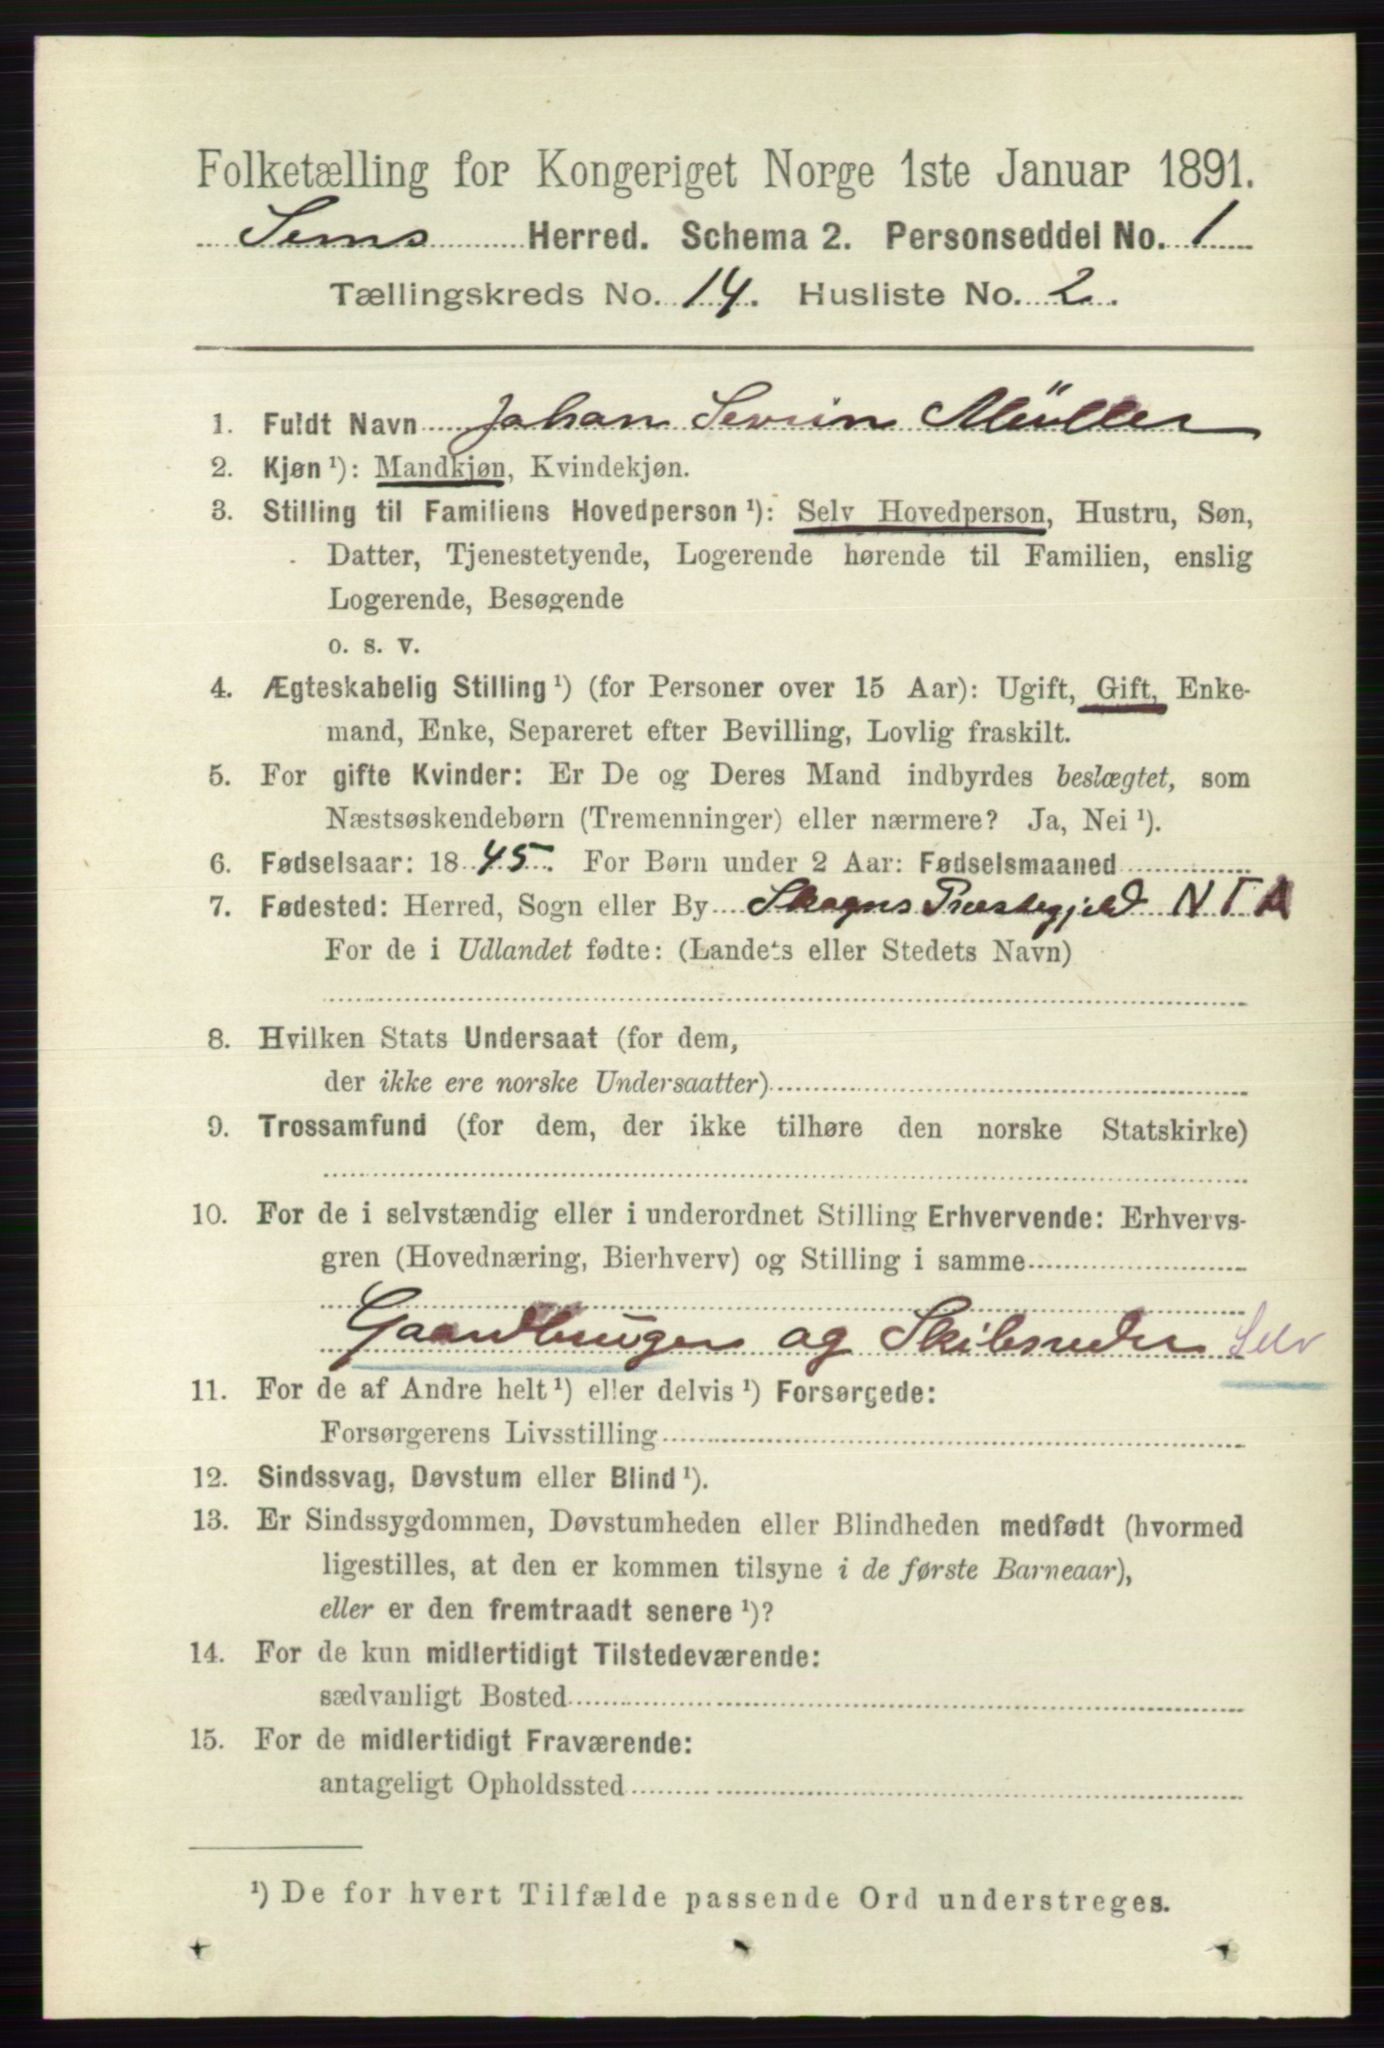 Folketælling for Kongeriget Norge 1ste Januar 1891.
Sems Herred. Schema 2. Personseddel No. 1
Tællingskreds No. 14. Husliste No. 2.
1. Fuldt Navn Johan Severin Müller
2. Kjøn ¹): Mandkjøn, Kvindekjøn.
3. Stilling til Familiens Hovedperson ¹): Selv Hovedperson, Hustru, Søn,
Datter, Tjenestetyende, Logerende hørende til Familien, enslig
Logerende, Besøgende
o. s. v.
4. Ægteskabelig Stilling ¹) (for Personer over 15 Aar): Ugift, Gift, Enke-
mand, Enke, Separeret efter Bevilling, Lovlig fraskilt.
5. For gifte Kvinder: Er De og Deres Mand indbyrdes beslægtet, som
Næstsøskendebørn (Tremenninger) eller nærmere? Ja, Nei ¹).
6. Fødselsaar: 1845. For Børn under 2 Aar: Fødselsmaaned
7. Fødested: Herred, Sogn eller By Skogns Præstegjeld N T A
For de i Udlandet fødte: (Landets eller Stedets Navn)
8. Hvilken Stats Undersaat (for dem,
der ikke ere norske Undersaatter)
9. Trossamfund (for dem, der ikke tilhøre den norske Statskirke)
10. For de i selvstændig eller i underordnet Stilling Erhvervende: Erhvervs-
gren (Hovednæring, Bierhverv) og Stilling i samme
Gaardbruger og Skibsreder Selv
11. For de af Andre helt ¹) eller delvis ¹) Forsørgede:
Forsørgerens Livsstilling
12. Sindssvag, Døvstum eller Blind ¹).
13. Er Sindssygdommen, Døvstumheden eller Blindheden medfødt (hvormed
ligestilles, at den er kommen tilsyne i de første Barneaar),
eller er den fremtraadt senere ¹)?
14. For de kun midlertidigt Tilstedeværende:
sædvanligt Bosted
15. For de midlertidigt Fraværende:
antageligt Opholdssted
¹) De for hvert Tilfælde passende Ord understreges.